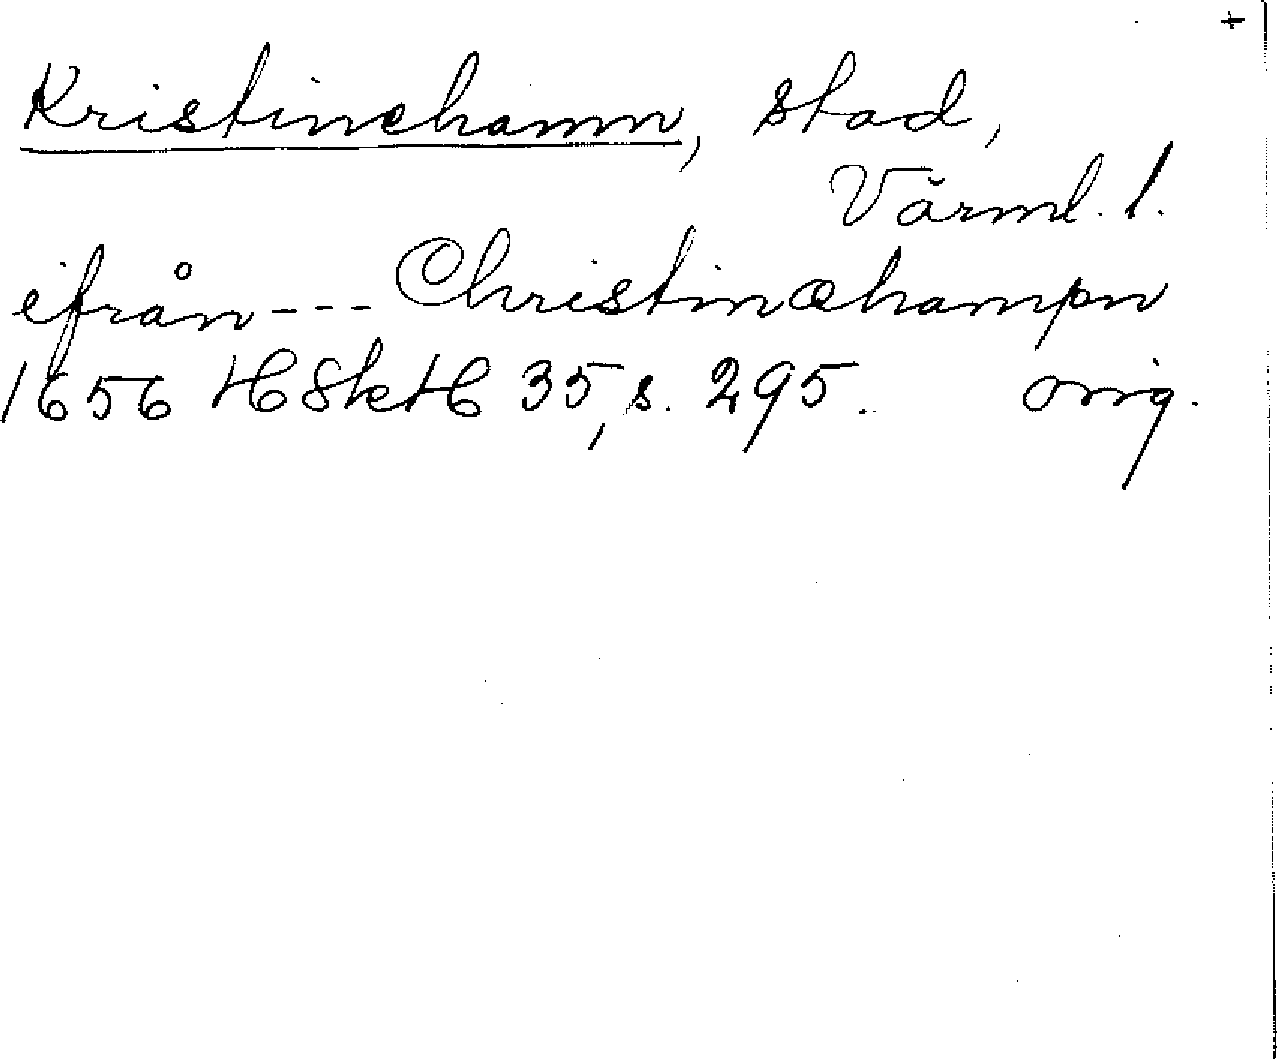 +
Kristinehamn, stad,
Värml. l.
ifrån --- Christinæhampn
1656 HSkH 35, s. 295. orig.